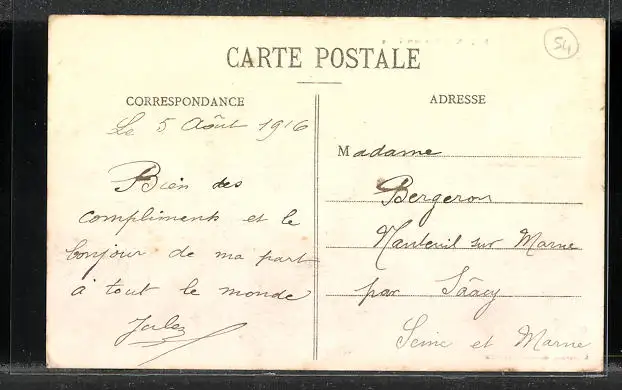 54
CARTE POSTALE
CORRESPONDANCE
Le 5 Août 1916
Bien des
compliments et le
bonjour de ma part
à tout le monde
Jules
ADRESSE
Madame
Bergeron
Nanteuil sur Marne
par Sâacy
Seine et Marne